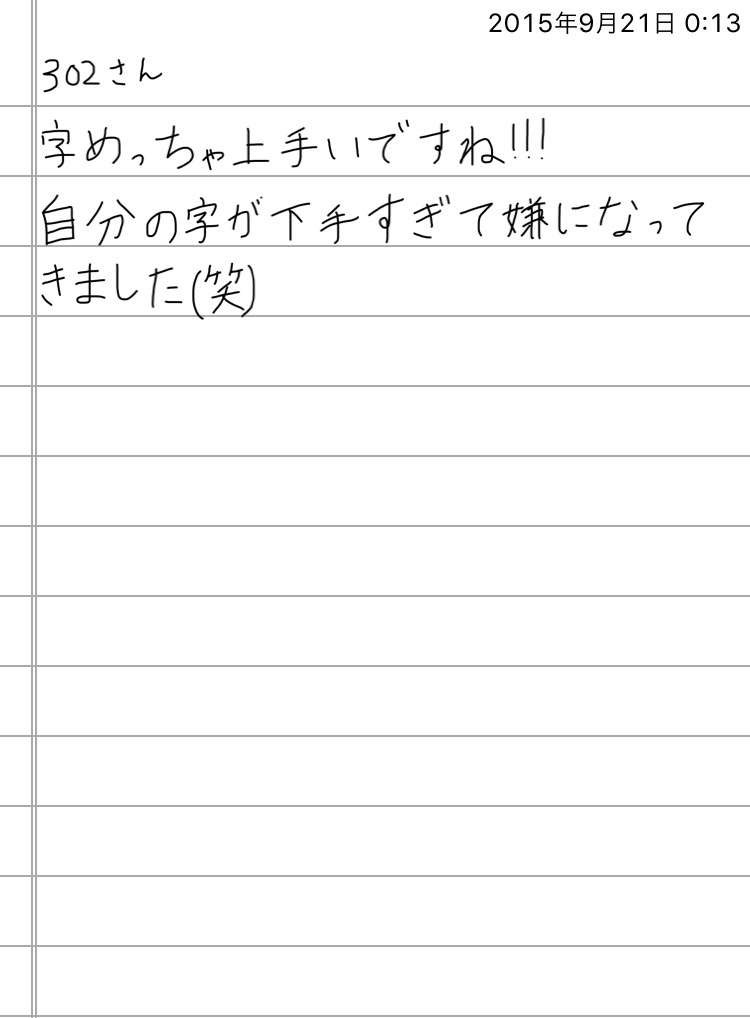 2015年9月21日 0:13
302さん
字めっちゃ上手いですね!!!
自分の字が下手すぎて嫌になって
きました(笑)